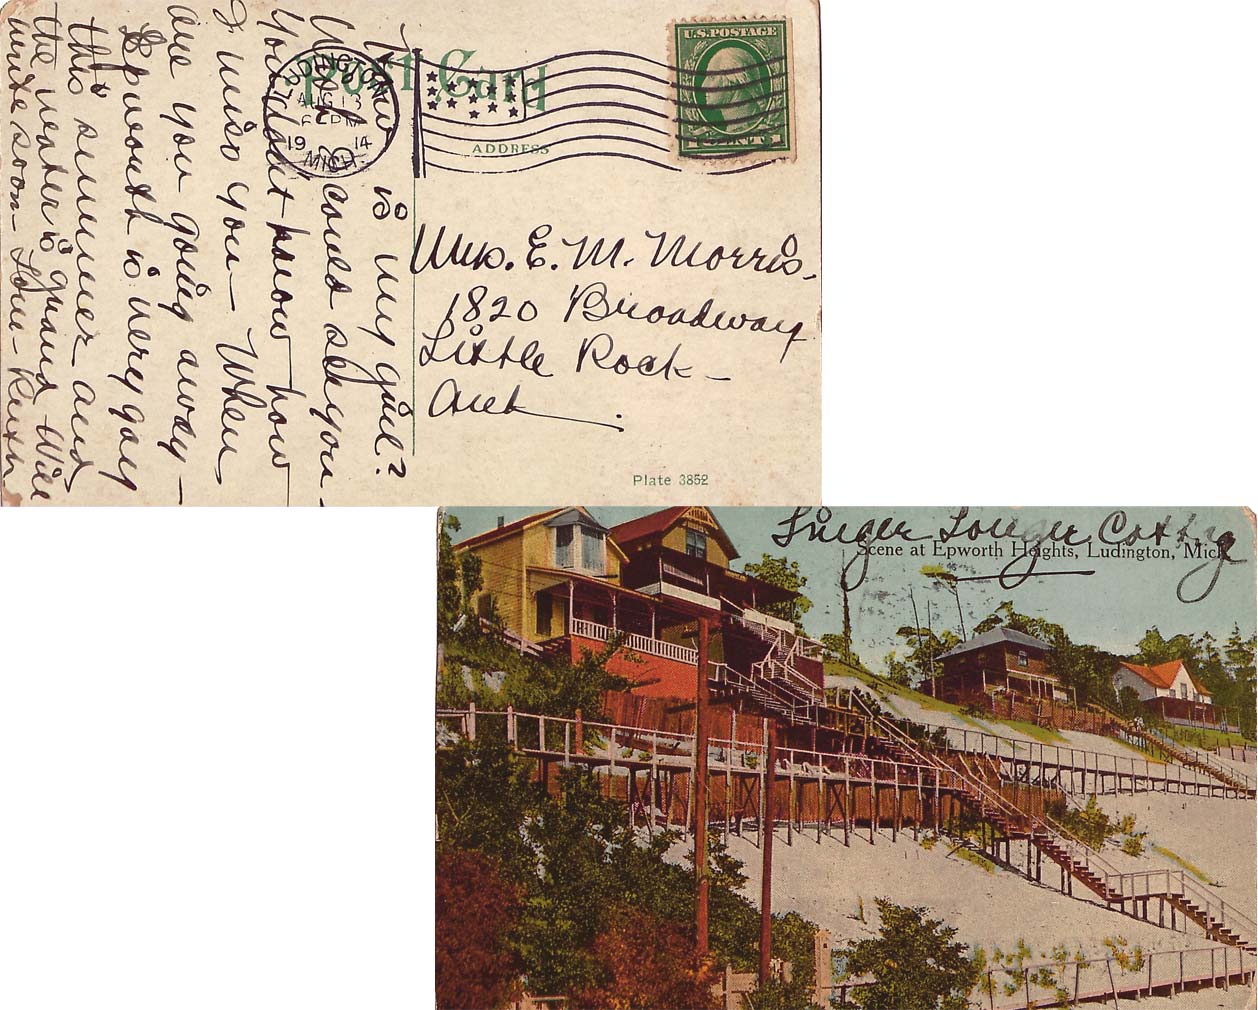 Post Card
ADDRESS
U.S. POSTAGE
1 CENT 1
LUDINGTON
AUG 13
PM
19 14
MICH.
How is my girl?
Wish I could see you
You don't know how
I miss you - When
are you going away -
Epworth is very gay
this summer - and
the water is grand - Will
write soon - Love - Ruth
Mrs. E. M. Morris.
1820 Broadway
Little Rock -
Ark.
Plate 3852
Linger Longer Cottg
Scene at Epworth Heights, Ludington, Mich.